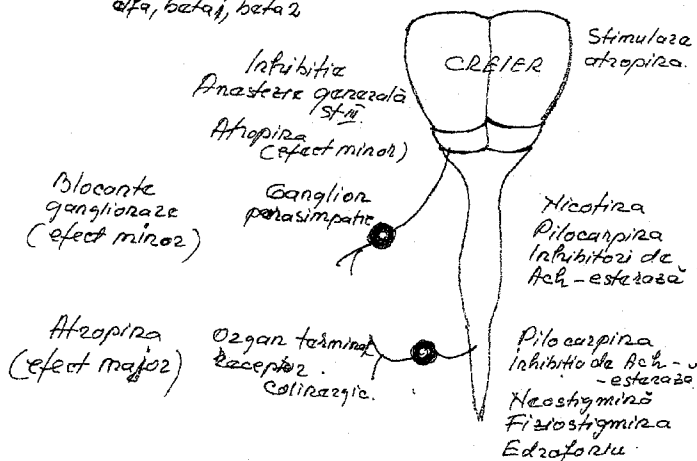 alfa, beta1, beta2
Inhibitie
Anestezie generală
st III
Atropina
(efect minor)
CREIER
Stimulare
atropina.
Blocante
ganglionare
(efect minor)
Ganglion
parasimpatic
Nicotina
Pilocarpina
Inhibitori de
Ach-esterază
Atropina
(efect major)
Organ terminal
Receptor.
Colinergic.
Pilocarpina
Inhibitie de Ach-
-esterază
Neostigmină
Fiziostigmina
Edrofoniu.